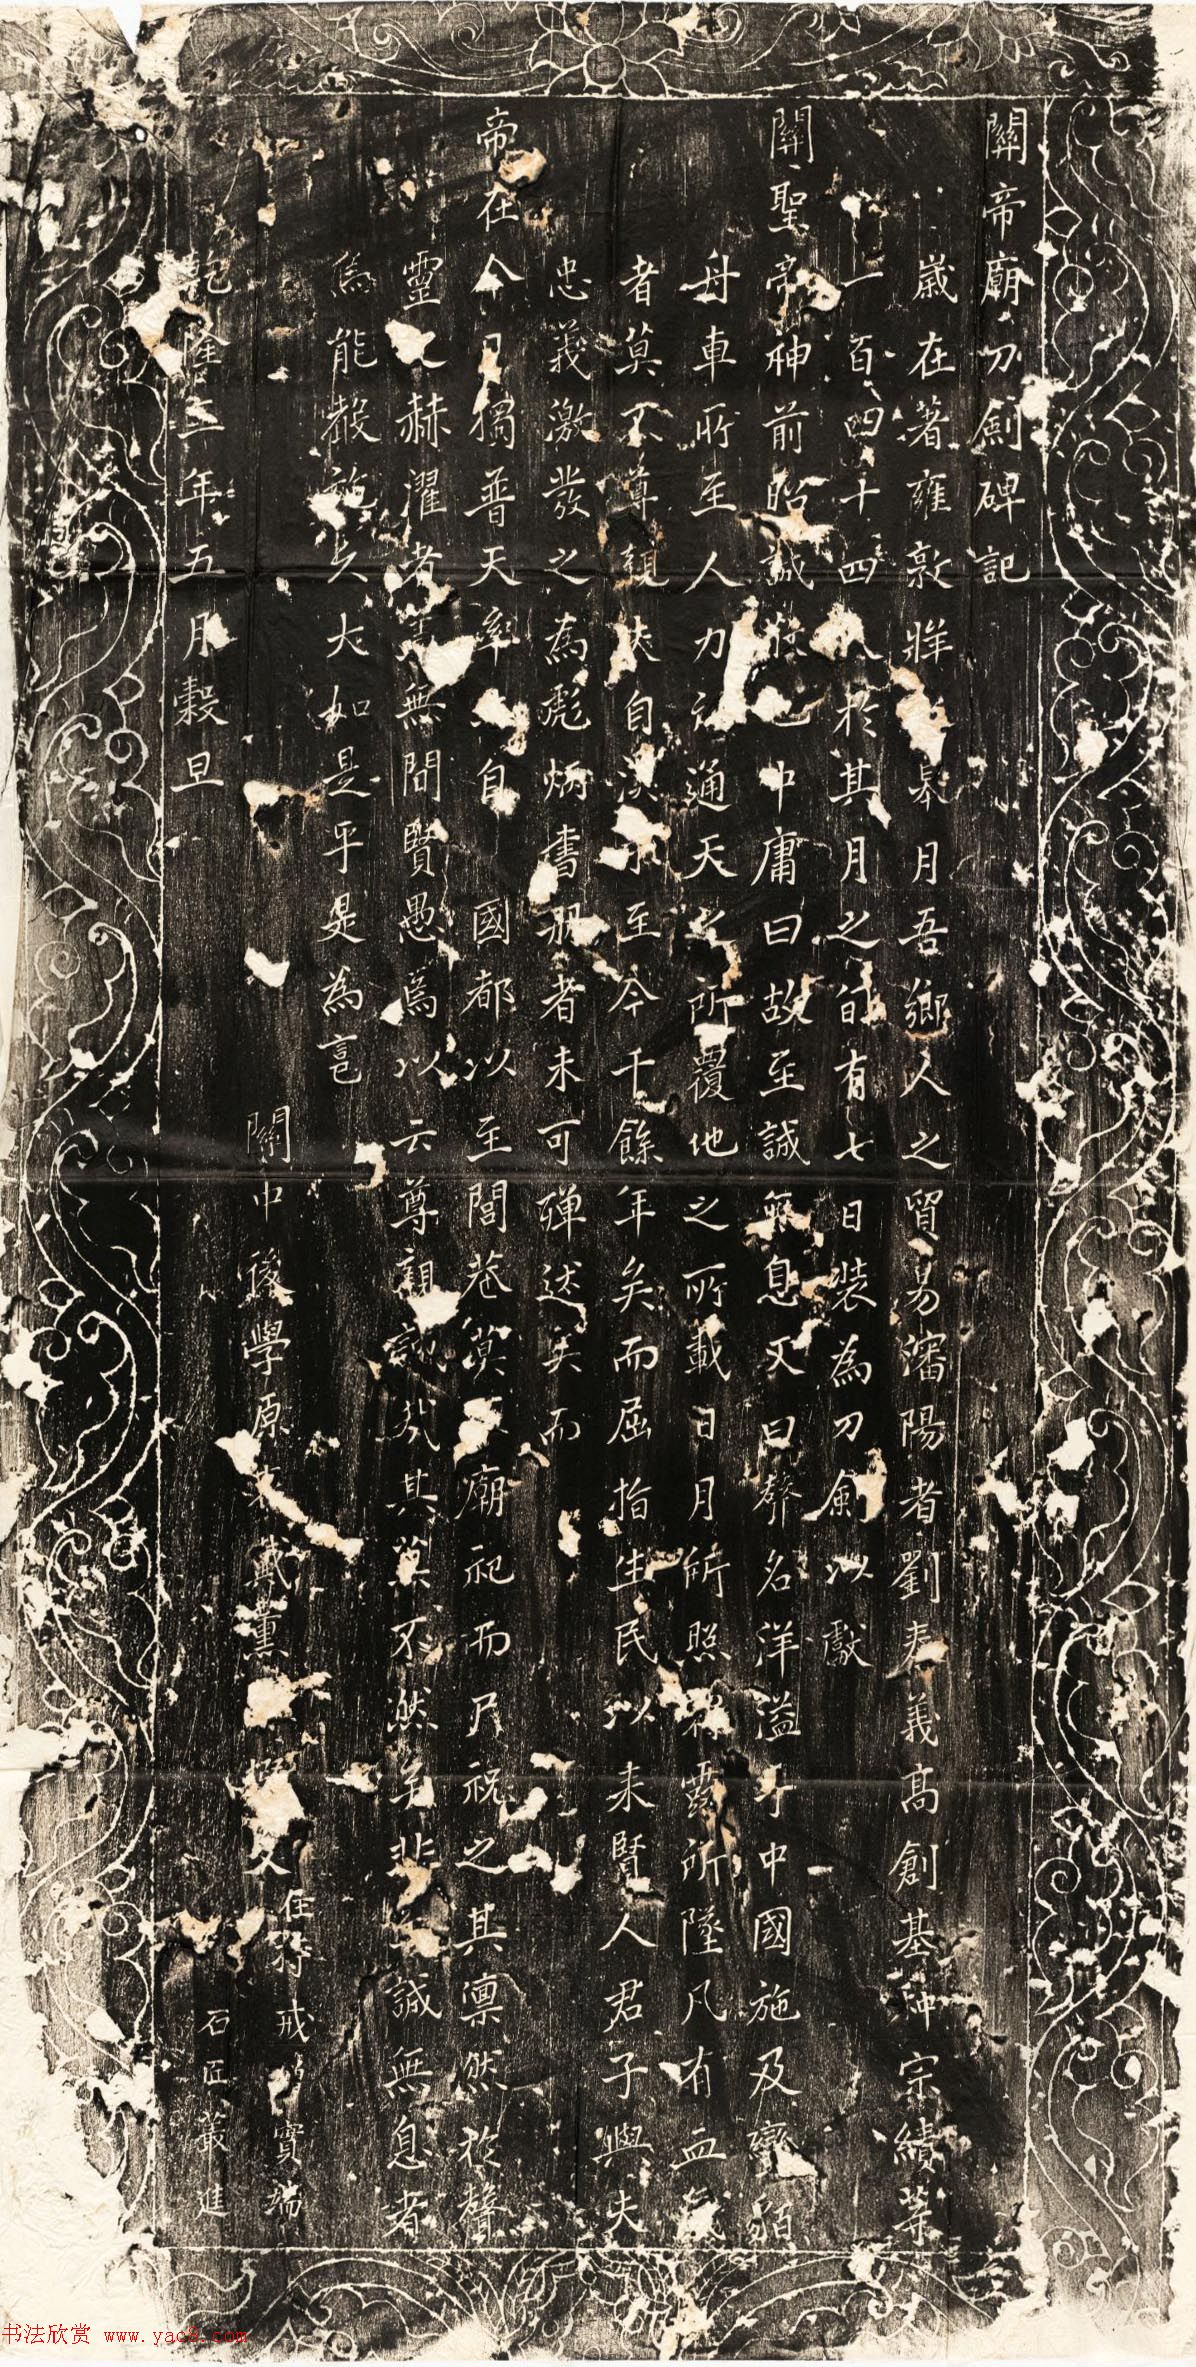 關帝廟刀劍碑記
歲在著雍敦牂皋月吾鄉人之貿易瀋陽者劉奉義高創基种宗績等
一百四十四人於其月之旬有七日裝為刀劍以獻
關聖帝神前昭誠也中庸曰故至誠無息又曰聲名洋溢乎中國施及蠻貊
舟車所至人力所通天之所覆地之所載日月所照霜露所墜凡有血氣
者莫不尊親自漢於至今千餘年矣而屈指生民以來賢人君子與夫
忠義激發之為彪炳書冊者未可殫述矣而
帝在今日獨普天率自國都以至閭巷莫不廟祀而尸祝之其凜然於聲
靈之赫濯者無問賢愚焉以云尊親哉其莫不然矣非至誠無息者
為能殽於久大如是乎是為言
關中後學原戴薰文
住持戒實端
乾隆三年五月穀旦
石匠叢進
书法欣赏 www.yac8.com